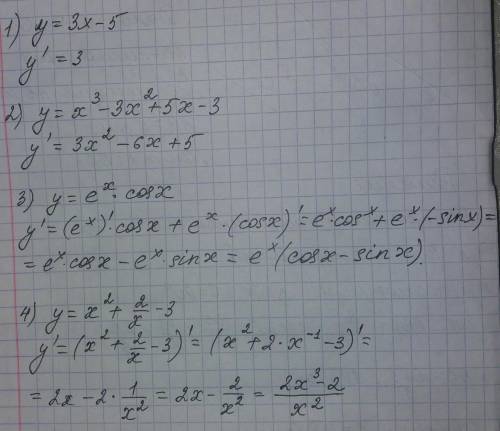 1) y = 3x - 5
y' = 3
2) y = x³ - 3x² + 5x - 3
y' = 3x² - 6x + 5
3) y = eˣ · cosx
y' = (eˣ)' · cosx + eˣ · (cosx)' = eˣ · cosˣ + eˣ · (-sinx) =
= eˣ · cosx - eˣ · sinx = eˣ (cosx - sinx).
4) y = x² + 2/x - 3
y' = (x² + 2/x - 3)' = (x² + 2 · x⁻¹ - 3)' =
= 2x - 2 · 1/x² = 2x - 2/x² = (2x³ - 2)/x²